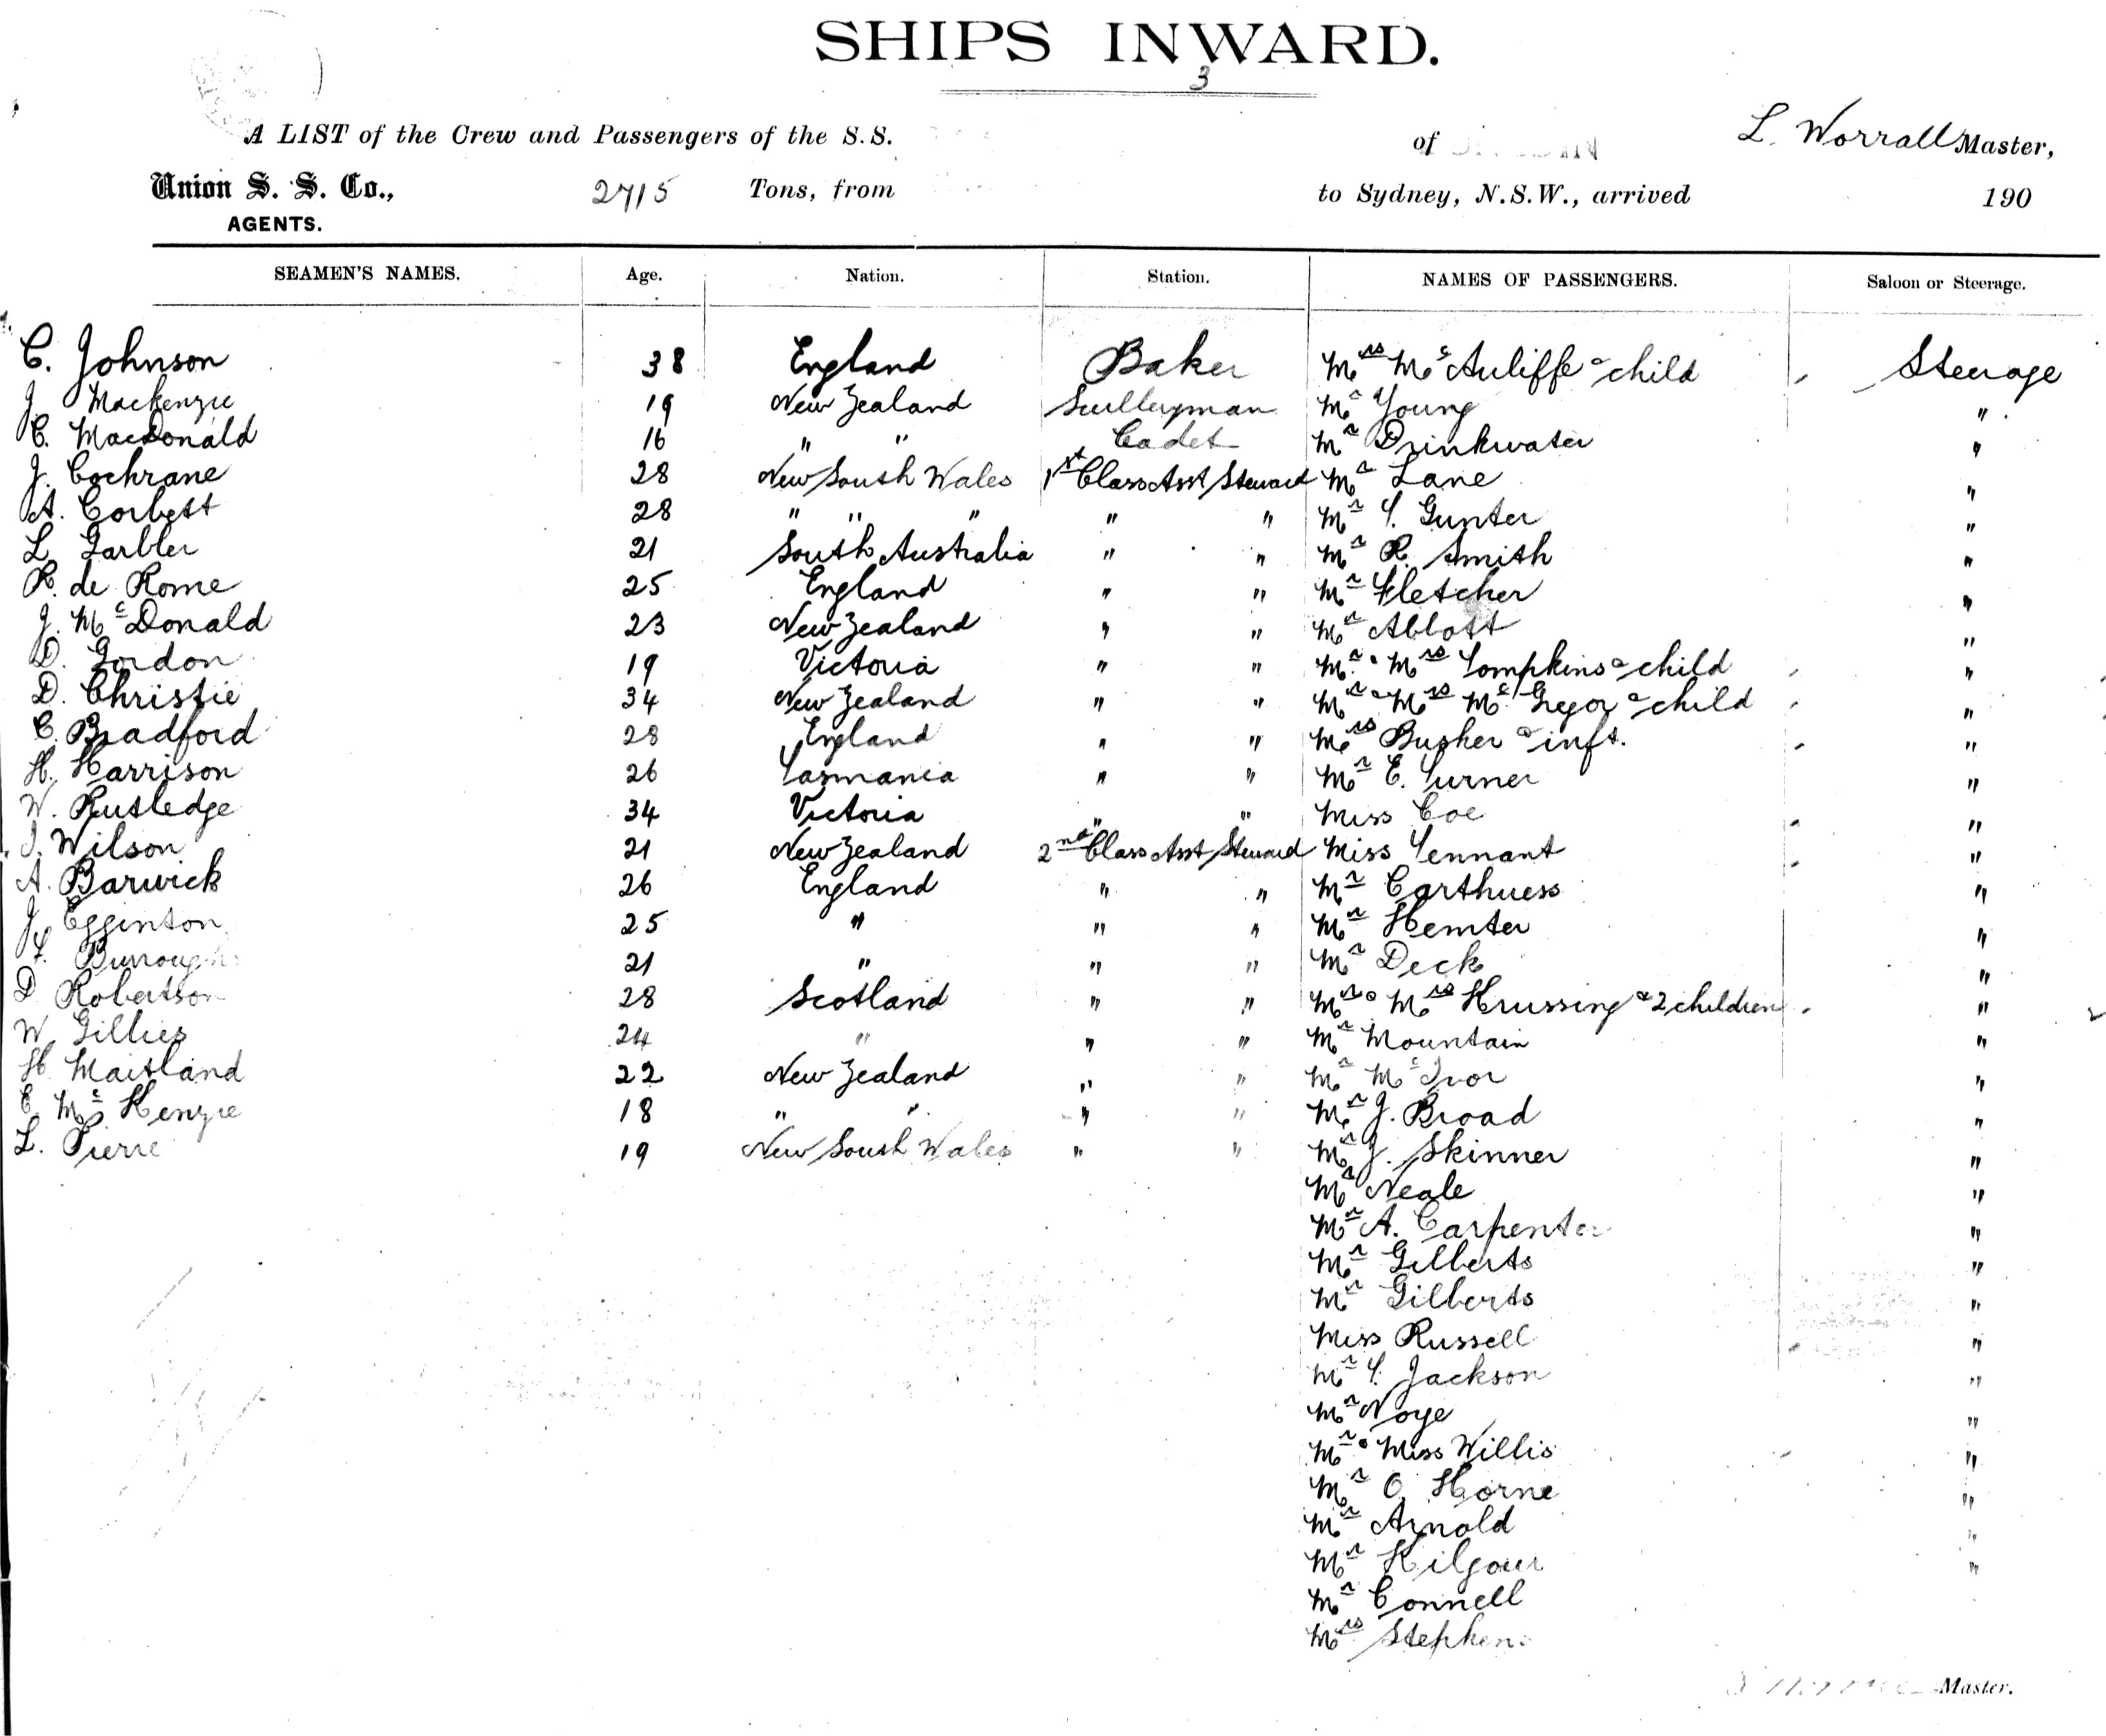 SHIPS INWARD.
3
A LIST of the Crew and Passengers of the S.S. of L. Worrall Master,
Union S. S. Co., 2715 Tons, from to Sydney, N.S.W., arrived 190
AGENTS.
SEAMEN'S NAMES. Age. Nation. Station. NAMES OF PASSENGERS. Saloon or Steerage.
C. Johnson 38 England Baker Mrs McAuliffe & child Steerage
J Mackenzie 19 New Zealand Sculleryman Mr Young "
C. MacDonald 16 " " Cadet Mr Drinkwater "
J. Cochrane 28 New South Wales 1st Class Asst Steward Mr Lane "
A. Corbett 28 " " " " " Mr T. Gunter "
L. Garbler 21 South Australia " " Mr R. Smith "
R. de Rome 25 England " " Mr Fletcher "
J. McDonald 23 New Zealand " " Mr Abbott "
D. Gordon 19 Victoria " " Mr & Mrs Tompkins & child "
D. Christie 34 New Zealand " " Mr & Mrs McGregor & child "
C. Bradford 28 England " " Mrs Busher & inft. "
H. Harrison 26 Tasmania " " Mr E. Turner "
W. Rutledge 34 Victoria " " Miss Coe "
J. Wilson 21 New Zealand 2nd Class Asst Steward Miss Tennant "
A. Barwick 26 England " " Mr Carthuess "
J. Egginton 25 " " " Mr Hemter "
Burrough 21 " " " Mr Deck "
D Robertson 28 Scotland " " Mr & Mrs Krussing & 2 children "
W. Gillies 24 " " " Mr Mountain "
H Maitland 22 New Zealand " " Mr McIvor "
E. McKenzie 18 " " " " Mr J. Broad "
L. Pierre 19 New South Wales " " Mr J. Skinner "
Mr Neale "
Mr A. Carpenter "
Mr Gilberts "
Mr Gilberts "
Miss Russell "
Mr T. Jackson "
Mr Noye "
Mr & Miss Willis "
Mr O. Horne "
Mr Arnold "
Mr Kilgour "
Mr Connell
Mrs Stephens
Master.